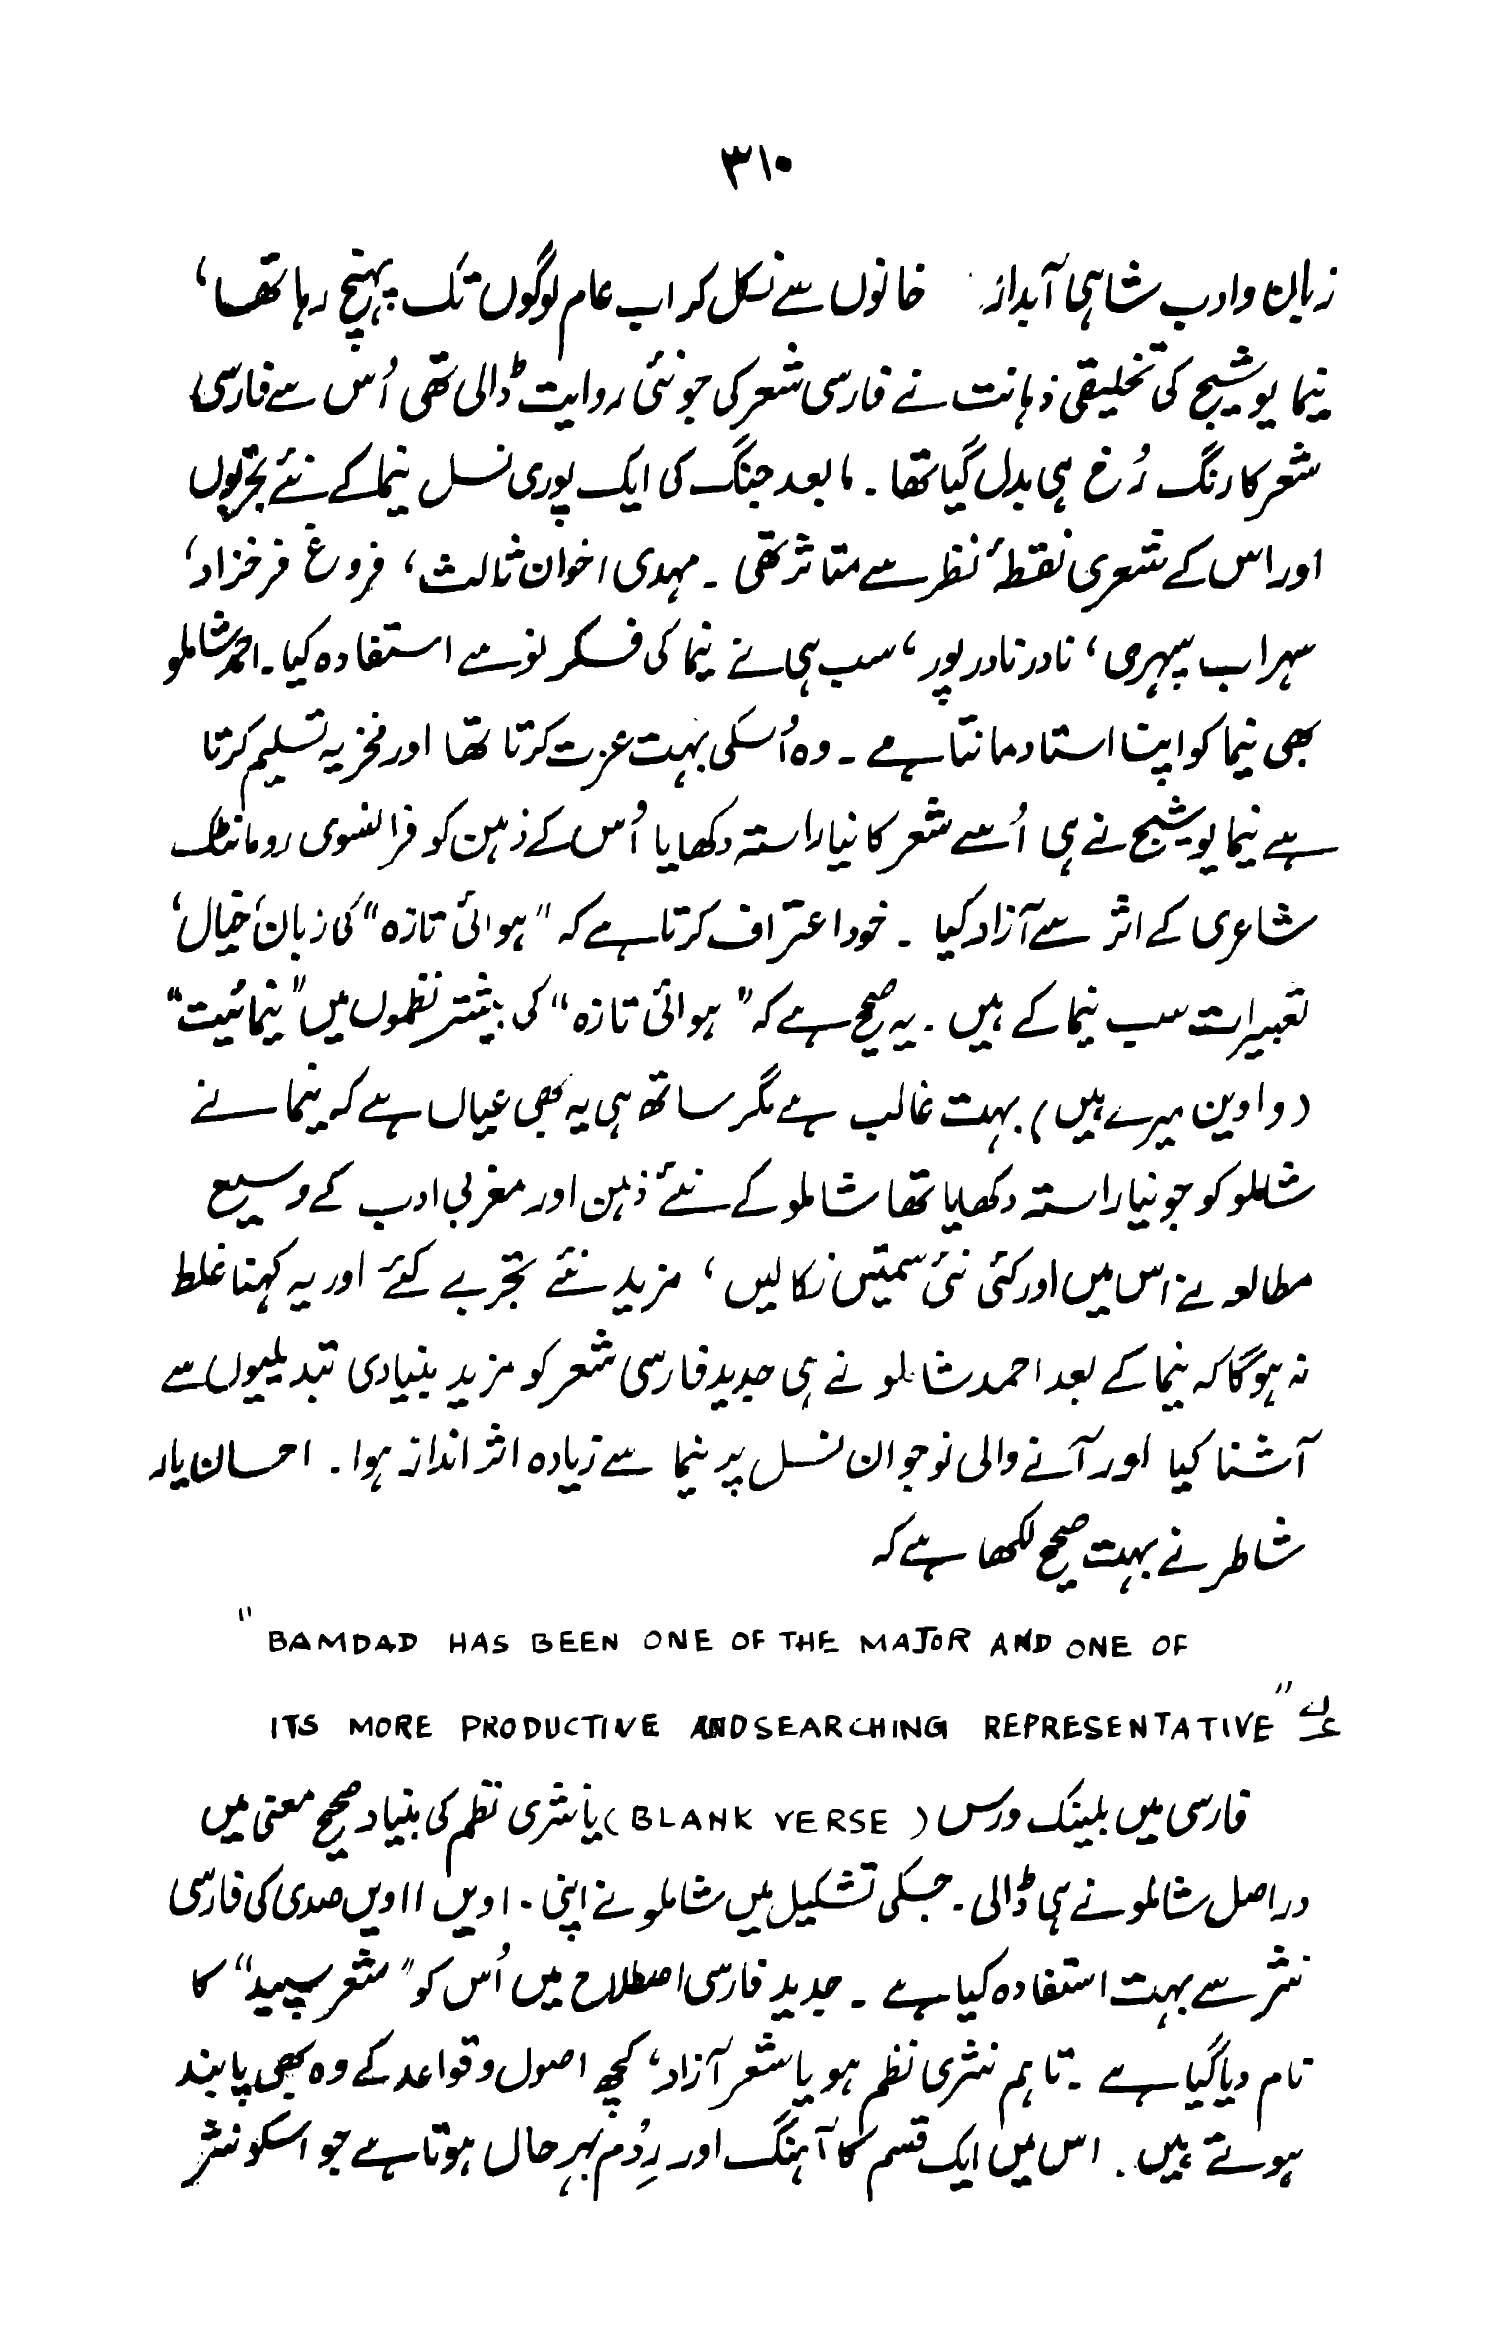 ۳۱۰
زبان و ادب شاہی آبدار خانوں سے نکل کر اب عام لوگوں تک پہنچ رہا تھا،
نیما یوشیج کی تخلیقی ذہانت نے فارسی شعر کی جو نئی روایت ڈالی تھی اُس سے فارسی
شعر کا رنگ رُخ ہی بدل گیا تھا ۔ مابعد جنگ کی ایک پوری نسل نیما کے نئے تجربوں
اور اس کے شعری نقطۂ نظر سے متاثر تھی ۔ مہدی اخوان ثالث، فروغ فرخزاد،
سہراب سپہری، نادر نادر پور، سب ہی نے نیما کی فکر نو سے استفادہ کیا ۔ احمد شاملو
بھی نیما کو اپنا استاد مانتا ہے ۔ وہ اُسکی بہت عزت کرتا تھا اور فخریہ تسلیم کرتا
ہے نیما یوشیج نے ہی اُسے شعر کا نیا راستہ دکھایا اُس کے ذہن کو فرانسوی رومانٹک
شاعری کے اثر سے آزاد کیا ۔ خود اعتراف کرتا ہے کہ "ہوائی تازہ" کی زبان، خیال،
تعبیرات سب نیما کے ہیں ۔ یہ صحیح ہے کہ "ہوائی تازہ" کی بیشتر نظموں میں "نیمائیت"
(واوین میرے ہیں) بہت غالب ہے مگر ساتھ ہی یہ بھی عیاں ہے کہ نیما نے
شاملو کو جو نیا راستہ دکھایا تھا شاملو کے نئے ذہن اور مغربی ادب کے وسیع
مطالعہ نے اس میں اور کئی نئی سمتیں نکالیں، مزید نئے تجربے کئے اور یہ کہنا غلط
نہ ہوگا کہ نیما کے بعد احمد شاملو نے ہی جدید فارسی شعر کو مزید بنیادی تبدیلیوں سے
آشنا کیا اور آنے والی نوجوان نسل پر نیما سے زیادہ اثر انداز ہوا ۔ احسان یار
شاطر نے بہت صحیح لکھا ہے کہ
"BAMDAD HAS BEEN ONE OF THE MAJOR AND ONE OF
ITS MORE PRODUCTIVE AND SEARCHING REPRESENTATIVE"
فارسی میں بلینک ورس (BLANK VERSE) یا نثری نظم کی بنیاد صحیح معنی میں
دراصل شاملو نے ہی ڈالی ۔ جسکی تشکیل میں شاملو نے اپنی ۱۰ویں ۱۱ویں صدی کی فارسی
نثر سے بہت استفادہ کیا ہے ۔ جدید فارسی اصطلاح میں اُس کو "شعر سپید" کا
نام دیا گیا ہے ۔ تاہم نثری نظم ہو یا شعر آزاد، کچھ اصول و قواعد کے وہ بھی پابند
ہوتے ہیں ۔ اس میں ایک قسم کا آہنگ اور رِدُم بہر حال ہوتا ہے جو اسکو نثر